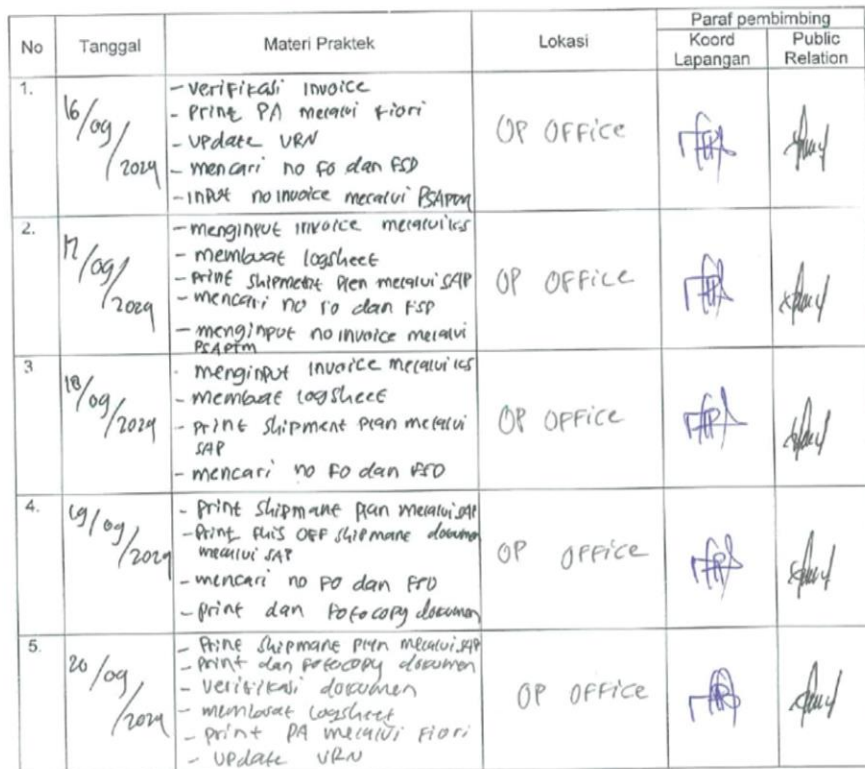 No Tanggal Materi Praktek Lokasi Paraf pembimbing
Koord Lapangan Public Relation
1. 16/09/2024
- verifikasi invoice
- Print PA melalui Fiori
- update VRN
- mencari no FO dan FSD
- input no invoice melalui PSAPTM
OP OFFICE
2. 17/09/2024
- menginput invoice melalui ics
- membuat logsheet
- print shipment plan melalui SAP
- mencari no FO dan FSD
- menginput no invoice melalui
PSAPTM
OP OFFICE
3 18/09/2024
- menginput invoice melalui ics
- membuat logsheet
- print shipment plan melalui
SAP
- mencari no FO dan FSD
OP OFFICE
4. 19/09/2024
- print shipmane plan melalui SAP
- print OFF shipmane documen
melalui SAP
- mencari no FO dan FSD
- print dan fotocopy documen
OP OFFICE
5. 20/09/2024
- Print shipmane plan melalui SAP
- print dan fotocopy documen
- verifikasi documen
- membuat logsheet
- print PA melalui Fiori
- update VRN
OP OFFICE